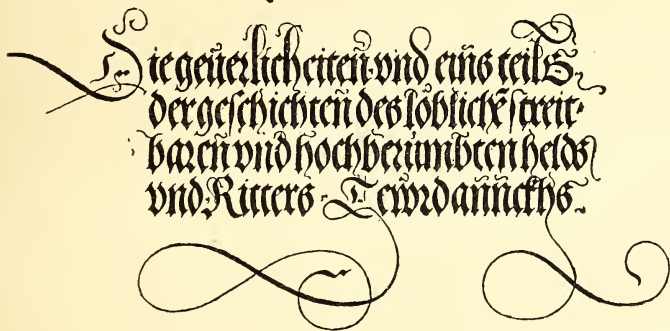 Die geuerlicheiten vnd eins teils
der geschichten des loblichen streit-
baren vnd hochberumbten helds
vnd Ritters Tewrdannckhs.